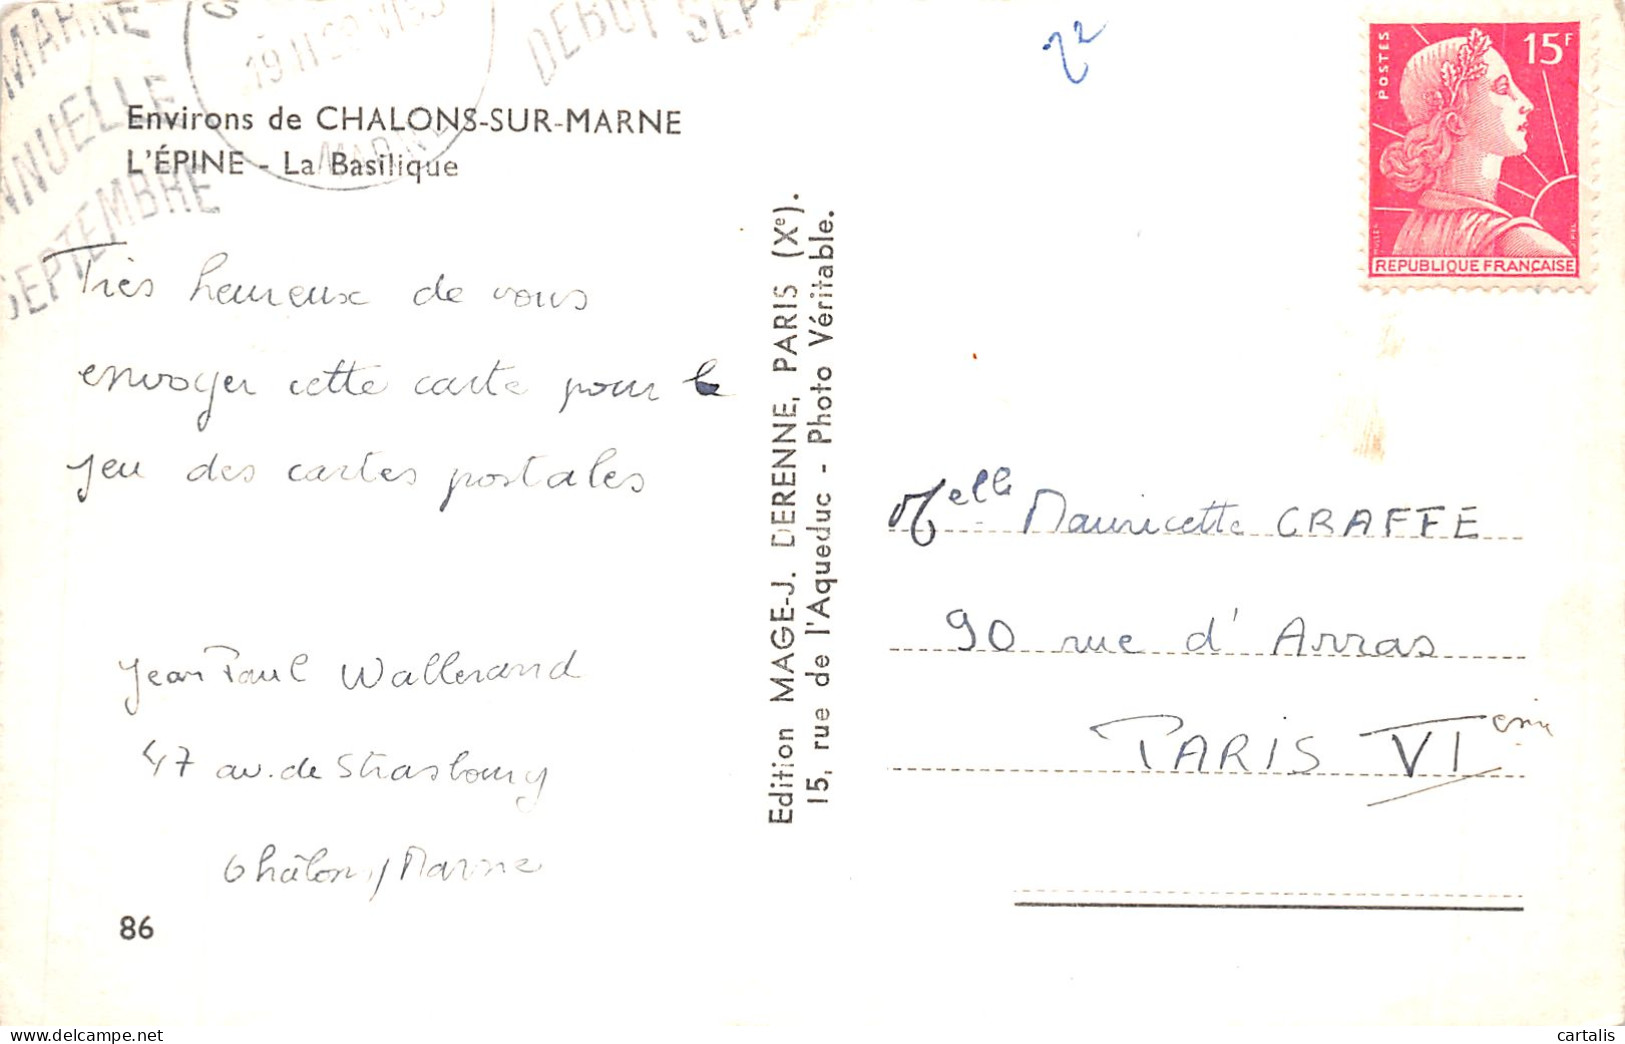 MARNE
ANNUELLE
SEPTEMBRE
MARNE
DEBUT SEPT
Environs de CHALONS-SUR-MARNE
L'ÉPINE - La Basilique
Très heureux de vous
envoyer cette carte pour le
jeu des cartes postales
Jean Paul Wallerand
47 av. de Strasbourg
Châlon s/ Marne
86
Edition MAGE-J. DERENNE, PARIS (Xe).
15, rue de l'Aqueduc - Photo Véritable.
POSTES
15F
MULLER
REPUBLIQUE FRANÇAISE
Melle Mauricette GRAFFE
90 rue d'Arras
PARIS VIème
delcampe.net
cartalis